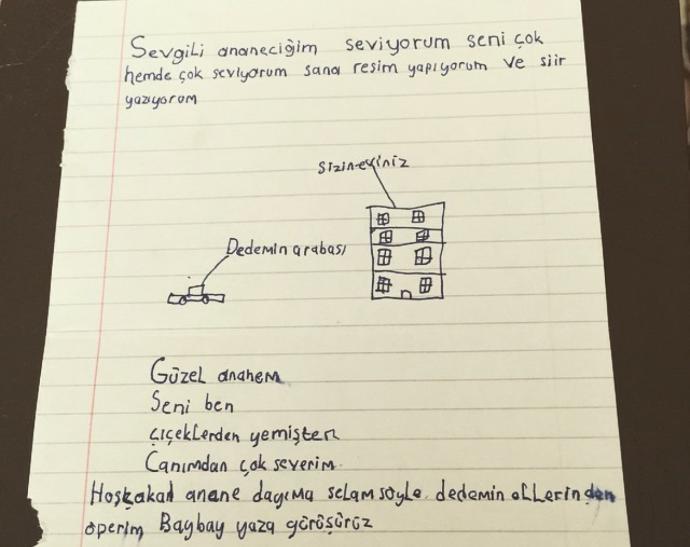 Sevgili ananeciğim seviyorum seni çok
hemde çok seviyorum sana resim yapıyorum ve siir
yazıyorum
sizin eviniz
Dedemin arabası
Güzel anahem
Seni ben
çiçeklerden yemişten
Canımdan çok severim
Hoşkakal anane dayıma selam söyle. dedemin ellerinden
öperim Baybay yaza görüşürüz